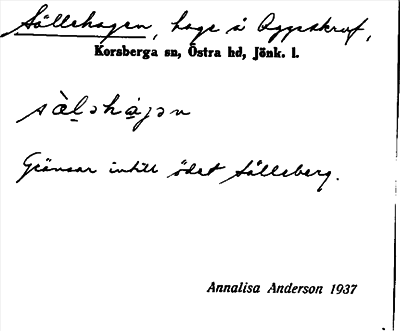 Sållehagen, hage å Oggeskruv,
Korsberga sn, Östra hd, Jönk. l.
sàləhàgən
Gränsar intill ödet Sålleberg.
Annalisa Anderson 1937